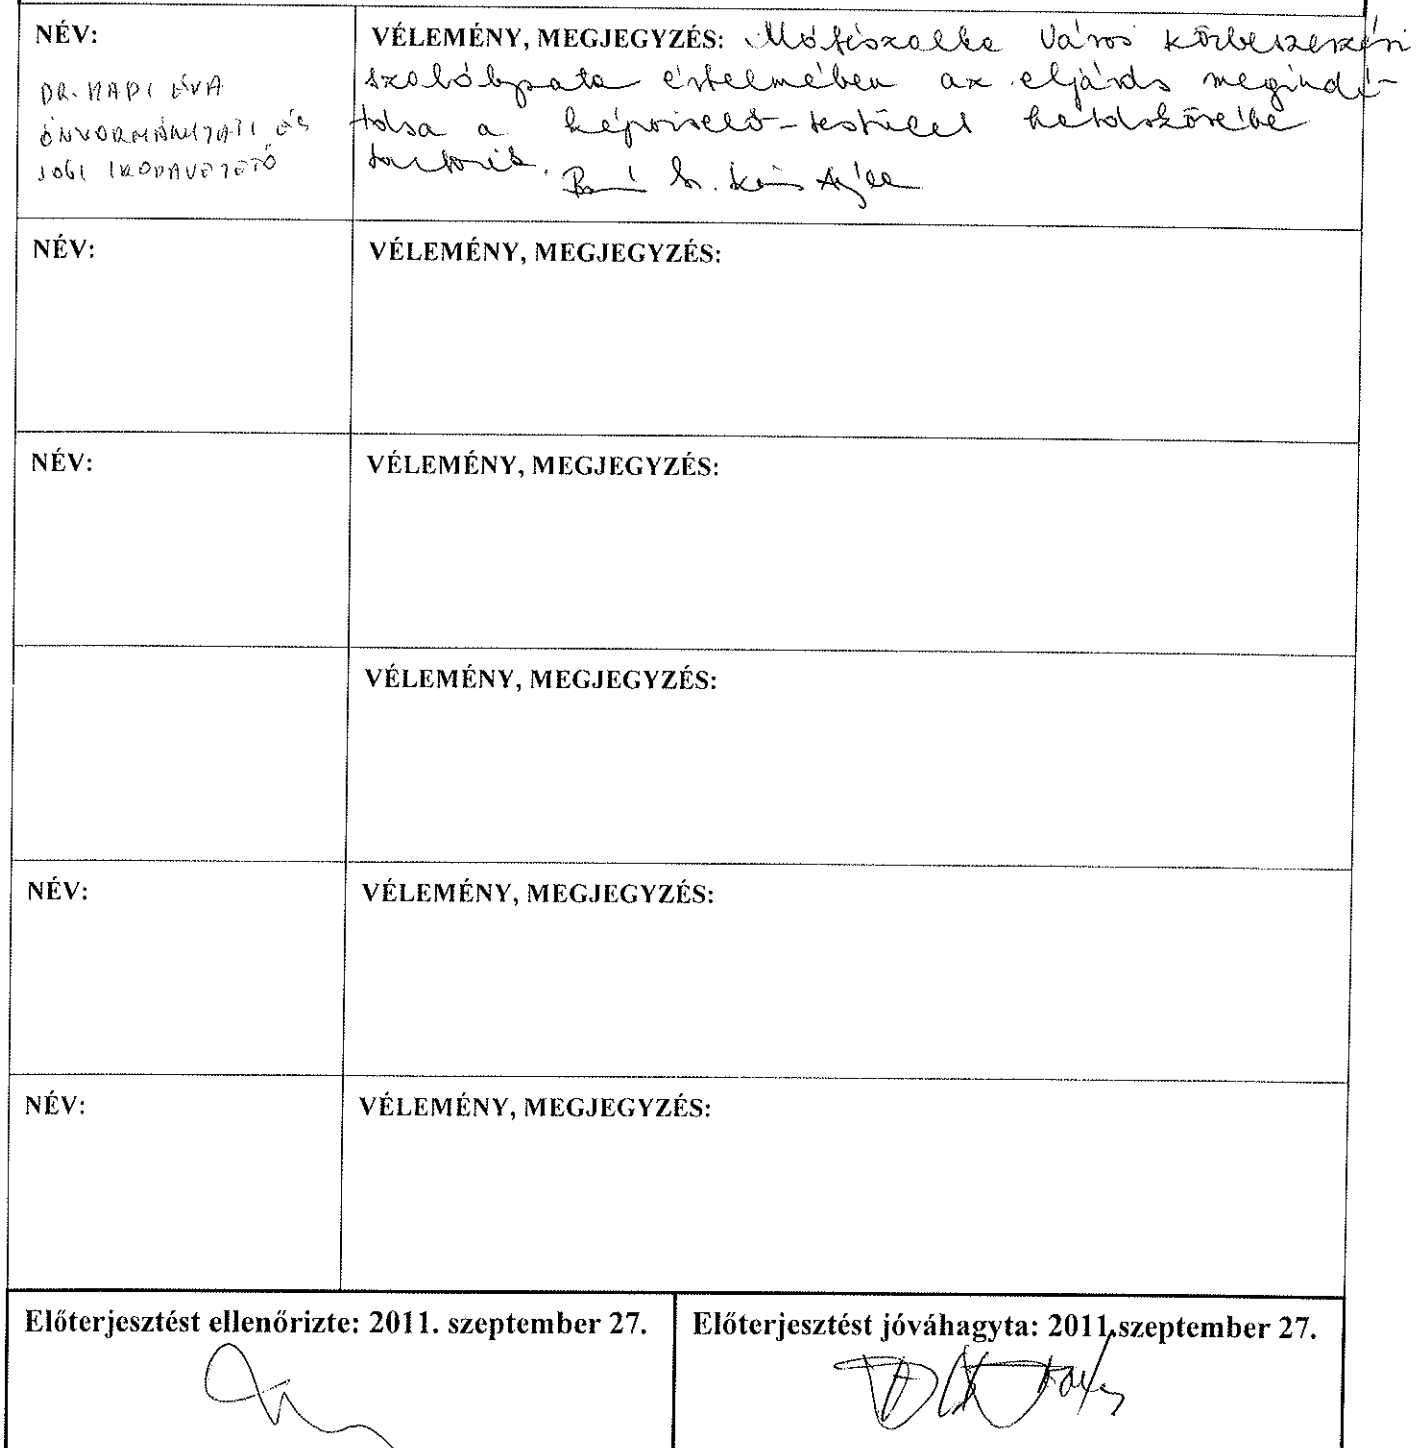 NÉV:
DR. NAPI ÉVA
ÖNKORMÁNYZATI ÉS
JOGI IRODAVEZETŐ
VÉLEMÉNY, MEGJEGYZÉS: Mátészalka Város közbeszerzési
szabályzata értelmében az eljárás megindí-
tása a képviselő-testület hatáskörébe
tartozik.
NÉV:
VÉLEMÉNY, MEGJEGYZÉS:
NÉV:
VÉLEMÉNY, MEGJEGYZÉS:
VÉLEMÉNY, MEGJEGYZÉS:
NÉV:
VÉLEMÉNY, MEGJEGYZÉS:
NÉV:
VÉLEMÉNY, MEGJEGYZÉS:
Előterjesztést ellenőrizte: 2011. szeptember 27.
Előterjesztést jóváhagyta: 2011.szeptember 27.